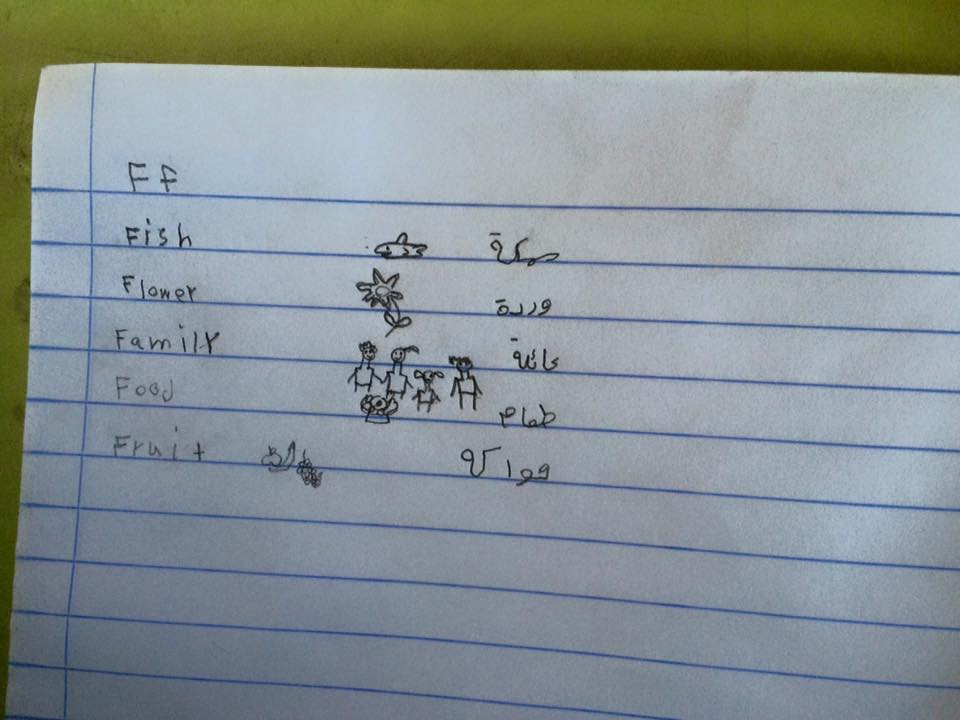 Ff
Fish سمكة
Flower وردة
Family عائلة
Food طعام
Fruit فواكه